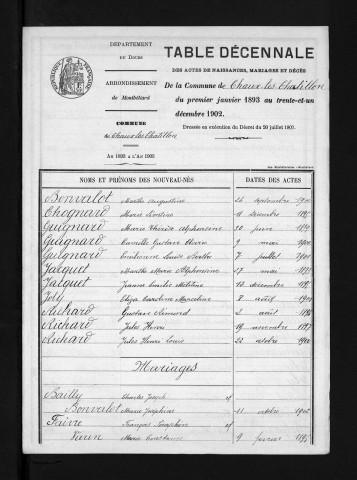 DÉPARTEMENT
DU DOUBS
ARRONDISSEMENT
de Montbéliard
COMMUNE
de Chaux les Chatillon
AN 1893 A L'AN 1903
RÉPUBLIQUE FRANÇAISE
TABLE DÉCENNALE
DES ACTES DE NAISSANCES, MARIAGES ET DÉCÈS
De la Commune de Chaux-les-Chatillon
du premier janvier 1893 au trente-et-un
décembre 1902.
Dressée en exécution du Décret du 20 juillet 1807.
NOMS ET PRÉNOMS DES NOUVEAU-NÉS DATES DES ACTES
Bonvalot Marthe Augustine 26 septembre
Chognard Marie Léontine décembre
Guignard Marie Thérèse Alphonsine 30 juin
Guignard Camille Gustave 9 mai
Guignard Louise 7 juillet
Jacquet Marthe Marie Alphonsine 17 mai
Jacquet Jeanne Emilie 13 décembre
Joly Eliza Caroline Marceline 8 août
Richard Gustave 2 août
Richard Jules Henri 19 novembre 1897
Richard Jules Henri Louis 23 octobre
Mariages
Bailly Charles Joseph et
Bonvalot Marie Joséphine 11 octobre
Faivre François Joseph et
Varin Marie Constance 9 février